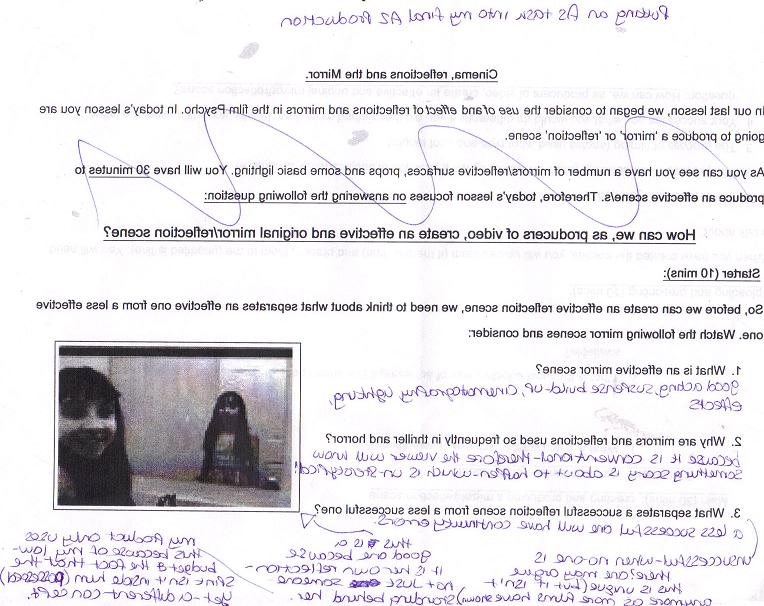 Putting an AS task into my final A2 Production
Cinema, reflections and the Mirror.
In our last lesson, we began to consider the use of and effect of reflections and mirrors in the film Psycho. In today's lesson you are
going to produce a 'mirror' or 'reflection' scene.
As you can see you have a number of mirror/reflective surfaces, props and some basic lighting. You will have 30 minutes to
produce an effective scene/s. Therefore, today's lesson focuses on answering the following question:
How can we, as producers of video, create an effective and original mirror/reflection scene?
Starter (10 mins):
So, before we can create an effective reflection scene, we need to think about what separates an effective one from a less effective
one. Watch the following mirror scenes and consider:
1. What is an effective mirror scene?
good acting, suspense build-up, cinematography lighting,
effects
2. Why are mirrors and reflections used so frequently in thriller and horror?
because it is conventional-therefore the viewer will know
something scary is about to happen-which is un-
3. What separates a successful reflection scene from a less successful one?
a less successful one will have continuity errors.
unsuccessful-when no-one is
there are may argue
this is unique (but it isn't
anymore as more films have shown)
this is a
good one because
it is her own reflection-
not just someone
standing behind her.
my product only uses
this because of my low-
budget & the fact that the
Spirit isn't inside him (possessed)
yet-a-different-concept.